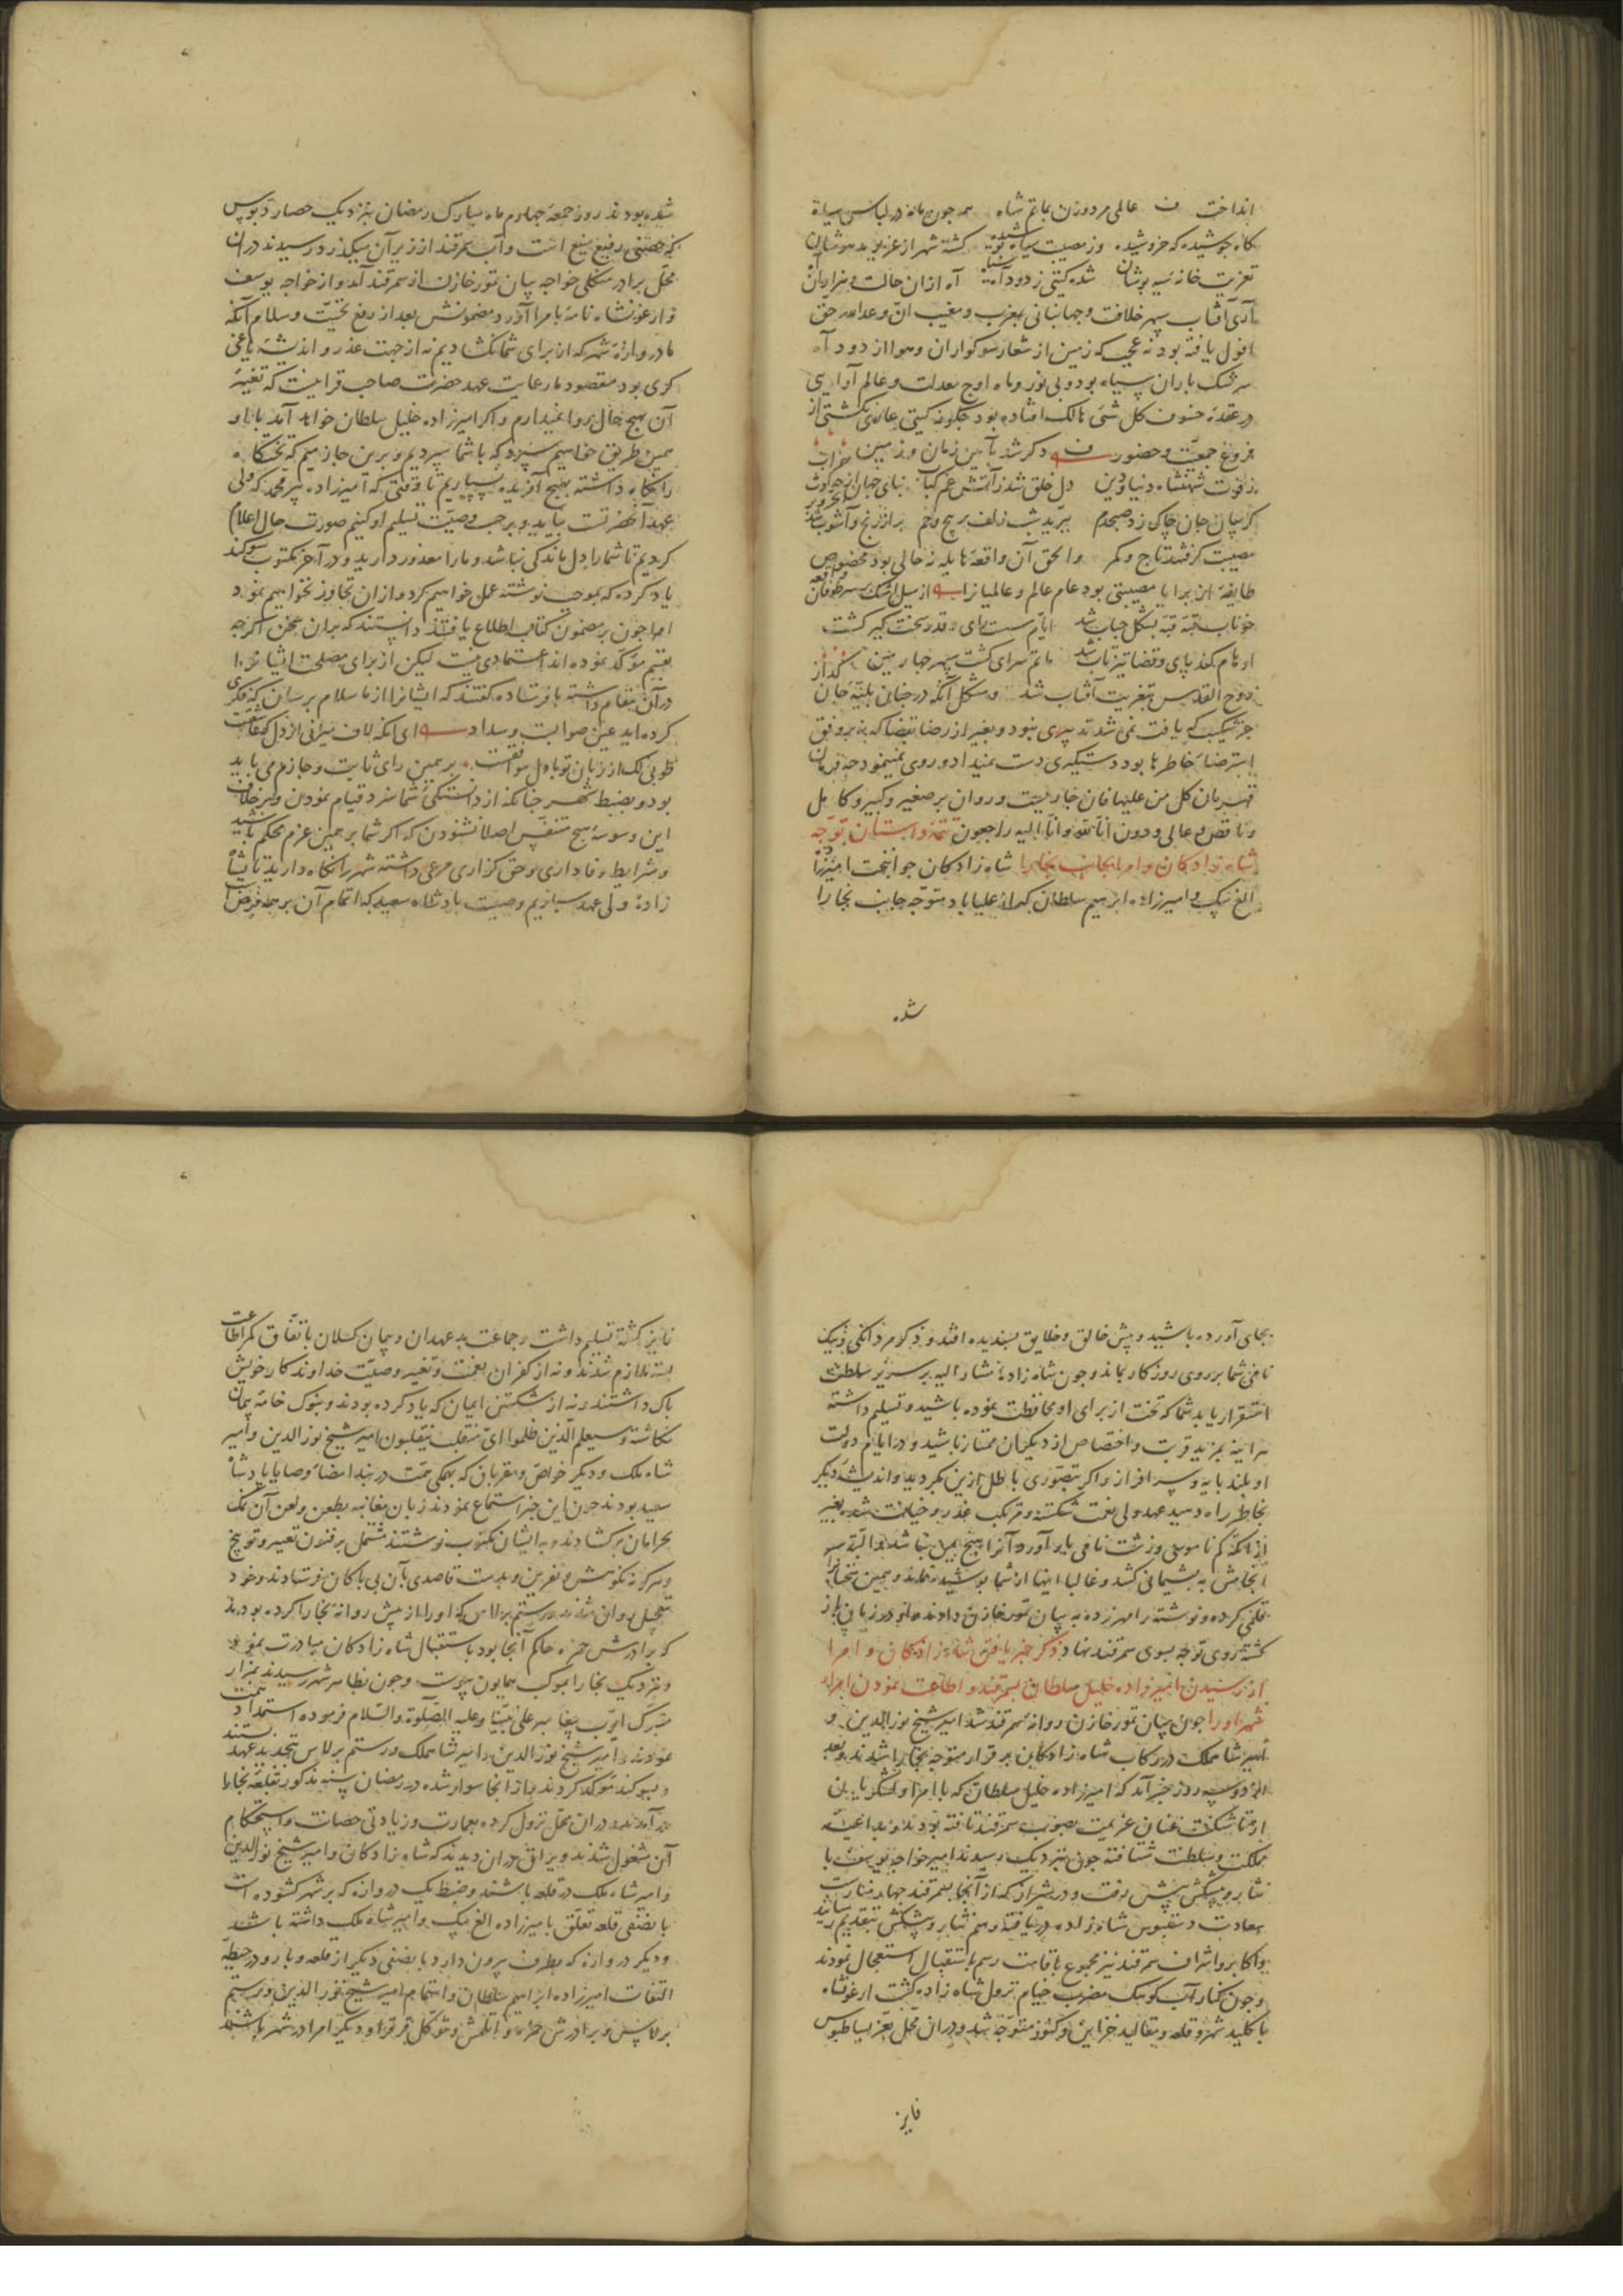 انداخت ف عالمی مرد و زن بماتم شاه همه چون خامه در لباس سیاه
کاه جوشیده که خروشیده وز مصیبت سیاه پوشیده کشته شهر از عزیو بد هوشان
تعزیت خانه سیه پوشان شده کیتی ز دود آه سیاه آه ازان حالت و هزاران آه
آری آفتاب سپهر خلافت و جهانبانی بمغرب و مغیب ان وعد الله حق
افول یافته بود نه عجب که زمین از شعار سوکواران و هوا از دود آه
سرشک باران سیاه بود و بی نور و ماه اوج معدلت و عالم آرایی
در عقده خسوف کل شیء هالک افتاده بود چکونه کیتی عاری نکشتی از
فروغ جمعیت و حضور ف دکر شد آیین زمان و زمین خراب
ز فوت شهنشاه دنیا و دین دل خلق شد ز آتش غم کباب بنای جهان
کریبان جان چاک زد صبحدم ببرید شب زلف پر پیچ و خم پر از رنج و آشوب شد
مصیبت کرفتند تاج و کمر والحق آن واقعه هایله نه حالی بود مخصوص
طایفه از برایا مصیبتی بود عام عالم و عالمیان را از سیل اشک بر سر طوفان واقعه
خوناب قبه قبه بشکل حباب شد ایام سست رای و قدر سخت کیر کشت
اوهام کند پای و قضا تیز تاب شد ماتم سرای کشت سپهر چهارمین
روح القدس بتعزیت آفتاب شد و مشکل آنکه در چنان بلیه جان کداز
جز شکیب که یافت نمی شد تدبیری نبود و بغیر از رضا بقضا که نه بر وفق
استرضاء خاطرها بود دستکیری دست نمیداد و روی نمینمود چه فرمان
قهرمان کل من علیها فان جاریست و روان بر صغیر و کبیر و کامل
و ناقص و عالی و دون انا لله و انا الیه راجعون تتمه داستان توجه
شاه زادکان و امرا بجانب بخارا شاه زادکان جوانبخت امیرزاده
الغ بیک و امیرزاده ابرهیم سلطان که از علیاباد متوجه جانب بخارا
شده
شده بودند روز جمعه چهارم ماه مبارک رمضان بنزدیک حصار دبوس
که حصنی رفیع منیع است و آب سمرقند از زیر آن میکذرد رسیدند در ان
محل برادر منکلی خواجه بیان تمور خازن از سمرقند آمد و از خواجه یوسف
و ارغونشاه نامه بامرا آورد مضمونش بعد از رفع تحیت و سلام آنکه
ما دروازه شهر که از برای شما نکشادیم نه از جهت عذر و اندیشه یاغی
کری بود مقصود ما رعایت عهد حضرت صاحب قرانیست که تغییر
آن بهیچ حال روا نمیداریم و اکر امیرزاده خلیل سلطان خواهد آمد با او
همین طریق خواهیم سپرد که با شما سپردیم و برین جازمیم که تختکاه
را نکاه داشته بهیچ آفریده نسپاریم تا وقتی که امیرزاده پیر محمد که ولی
عهد آنحضرتست بیاید و بر حسب وصیت تسلیم او کنیم صورت حال اعلام
کردیم تا شما را دل ماندکی نباشد و ما را معذور دارید و در آخر مکتوب سوکند
یاد کرده که بموجب نوشته عمل خواهیم کرد و ازان تجاوز نخواهیم نمود
امرا چون بر مضمون کتاب اطلاع یافتند دانستند که بران سخن اکرچه
بقسم مؤکد نموده اند اعتمادی نیست لیکن از برای مصلحت ایشان را
در آن مقام داشته با فرستاده کفتند که ایشان را از ما سلام برسان که فکری
کرده اید عین صوابست و سداد ای آنکه لاف میزنی از دل که عاشقست
طوبی لک ار زبان تو با دل موافقست بر همین رای ثابت و جازم می باید
بود و بضبط شهر چنانکه از دانستکی شما سزد قیام نمودن و بر خلاف
این وسوسه هیچ متنفس اصلا نشنودن که اکر شما بر همین عزم محکم باشید
و شرایط وفاداری و حق کزاری مرعی داشته شهر را نکاه دارید تا بشاه
زاده ولی عهد سپاریم وصیت پادشاه سعید که اتمام آن بر همه فرض است
بجای آورده باشید و پیش خالق و خلایق پسندیده افتد و ذکر مردانکی و نیک
نامی شما بر روی روزکار بماند و چون شاه زاده مشار الیه بر سریر سلطنت
استقرار یابد شما که تخت از برای او محافظت نموده باشید و تسلیم داشته
هر آینه بمزید قربت و اختصاص از دیکران ممتاز باشید و در ایام دولت
او بلند پایه و سرافراز و اکر تصوری باطل ازین بکردید و اندیشه دیکر
بخاطر راه دهید عهد ولی نعمت شکسته و مرتکب غدر و خیانت شده بغیر
از آنکه کم ناموسی و زشت نامی بار آورد آنرا هیچ یمن نباشد و البته سر
انجامش به پشیمانی کشد و غالبا اینها از شما پوشیده نماند و همین سخنان را
قلمی کرده و نوشته را مهر زده به بیان تمور خازن دادند و او در زمان باز
کشته روی توجه بسوی سمرقند نهاد ذکر خبر یافتن شاه زادکان و امرا
از رسیدن امیرزاده خلیل سلطان بسمرقند و اطاعت نمودن امراء
شهر او را چون بیان تمور خازن روانه سمرقند شد امیر شیخ نور الدین و
امیر شاهملک در رکاب شاه زادکان بر قرار متوجه بخارا شدند و بعد
از دو سه روز خبر آمد که امیرزاده خلیل سلطان که با امرا و لشکریان
از تاشکنت عنان عزیمت بصوب سمرقند تافته بودند و بداعیه
مملکت و سلطنت شتافته چون بنزدیک رسیدند امیر خواجه یوسف با
نثار و پیشکش پیش رفت و در شیراز که از آنجا بسمرقند چهار فرسنک است
سعادت دستبوس شاه زاده دریافته رسم نثار و پیشکش بتقدیم رسانید
و اکابر و اشراف سمرقند نیز مجموع باقامت رسم استقبال استعجال نمودند
و چون کنار آب کوهک مضرب خیام نزول شاه زاده کشت ارغونشاه
با کلید شهر و قلعه و مقالید خزاین و کنوز متوجه شد و در ان محل بعز بساطبوس
فایز
فایز کشته تسلیم داشت و جماعت بد عهدان و پیمان کسلان باتفاق کمر اطاعت
بسته ملازم شدند و نه از کفران نعمت و تغییر وصیت خداوندکار خویش
باک داشتند و نه از شکستن ایمان که یاد کرده بودند و بنوک خامه پیمان
نکاشته و سیعلم الذین ظلموا ای منقلب ینقلبون امیر شیخ نور الدین و امیر
شاه ملک و دیکر خواص و مقربان که بهمکی همت در بند امضاء وصایا پادشاه
سعید بودند چون این خبر استماع نمودند زبان مغایبه بطعن و لعن آن نمک
بحرامان برکشادند و به ایشان مکتوب نوشتند مشتمل بر فنون تعییر و توبیخ
و هرکونه نکوهش و نفرین و بدست قاصدی بآن بی باکان فرستادند و خود
بتعجیل روان شدند و رستم برلاس که او را از پیش روانه بخارا کرده بودند
که برادرش حمزه حاکم آنجا بود باستقبال شاه زادکان مبادرت نمود
و نزدیک بخارا بموکب همایون پیوست و چون بظاهر شهر رسیدند بمزار
متبرک ایوب پیغامبر علی نبینا و علیه الصلوة و السلام فرموده استمداد همت
نمودند و امیر شیخ نور الدین و امیر شاهملک و رستم برلاس بتجدید عهد بستند
و بسوکند مؤکد کردند و از انجا سوار شده در رمضان سنه مذکور بقلعه بخارا
در آمدند و در ان محل نزول کرده بعمارت و زیادتی حصانت و استحکام
آن مشغول شدند و یراق در ان دیدند که شاه زادکان و امیر شیخ نور الدین
و امیر شاه ملک در قلعه باشند و ضبط یک دروازه که بر شهر کشوده است
با نصفی قلعه تعلق بامیرزاده الغ بیک و امیر شاه ملک داشته باشد
و دیکر دروازه که بطرف بیرون دارد با نصفی دیکر از قلعه و بارو در حیطه
التفات امیرزاده ابراهیم سلطان و اهتمام امیر شیخ نور الدین و رستم
برلاس و برادرش حمزه و ایتلمش و توکل قرقرا و دیکر امرا در شهر باشند